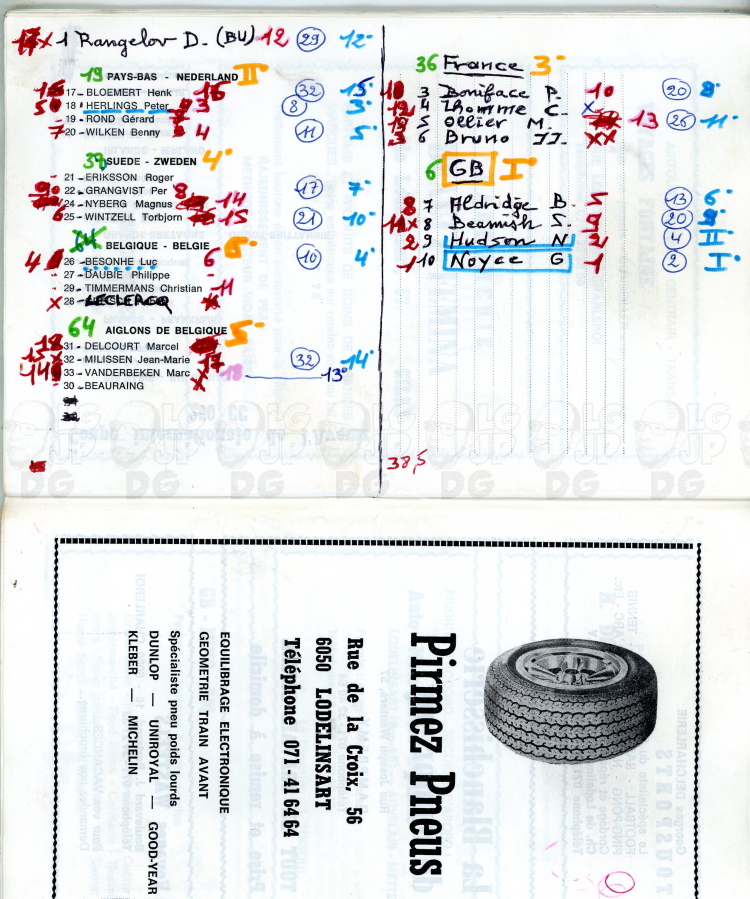 1 Rangelov D. (BU) 12 29 12°
19 PAYS-BAS - NEDERLAND II°
17 - BLOEMERT Henk 16 32 15°
18 HERLINGS Peter 3 8 3°
19 - ROND Gérard
7 20 - WILKEN Benny 4 11 5°
39 SUEDE - ZWEDEN 4°
21 - ERIKSSON Roger
22 - GRANGVIST Per 8 17 7°
24 - NYBERG Magnus 14
6 25 - WINTZELL Torbjorn 15 21 10°
BELGIQUE - BELGIE
4 26 - BESONHE Luc 6 10 4°
27 - DAUBIE Philippe
29 - TIMMERMANS Christian 11
x 28 - LECLERCQ
64 AIGLONS DE BELGIQUE 5°
31 - DELCOURT Marcel
32 - MILISSEN Jean-Marie 17 32 14°
33 - VANDERBEKEN Marc 18 13°
30 - BEAURAING
36 France 3°
3 Boniface P. 10 20 8°
4 Thomme C. x
5 Ollier M. 13 26 11°
3 6 Bruno JJ. xx
6 GB I°
8 7 Aldridge B. 5 13 6°
8 Beamish S. 9 20 9°
2 9 Hudson N 2 4 II°
1 10 Noyce G 1 2 I°
38,5
Pirmez Pneus
Rue de la Croix, 56
6050 LODELINSART
Téléphone 071 - 41 64 64
EQUILIBRAGE ELECTRONIQUE
GEOMETRIE TRAIN AVANT
Spécialiste pneu poids lourds
DUNLOP — UNIROYAL — GOOD-YEAR
KLEBER — MICHELIN